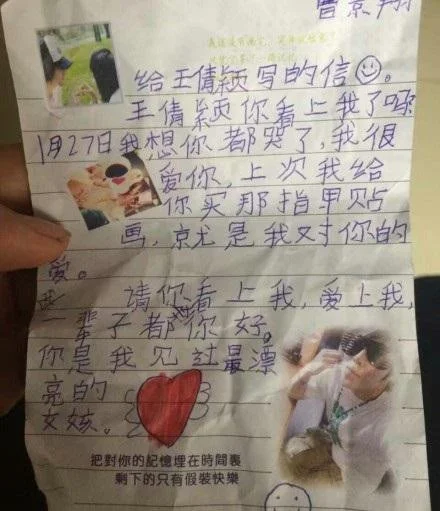 景翔
给王倩颖写的信
王倩颖你看上我了呀
1月27日我想你都哭了,我很
爱你,上次我给
你买那指甲贴
画,就是我对你的
爱。
请你看上我,爱上我,
一辈子都你好。
你是我见过最漂
亮的
女孩。
把對你的記憶埋在時間裏
剩下的只有假裝快樂